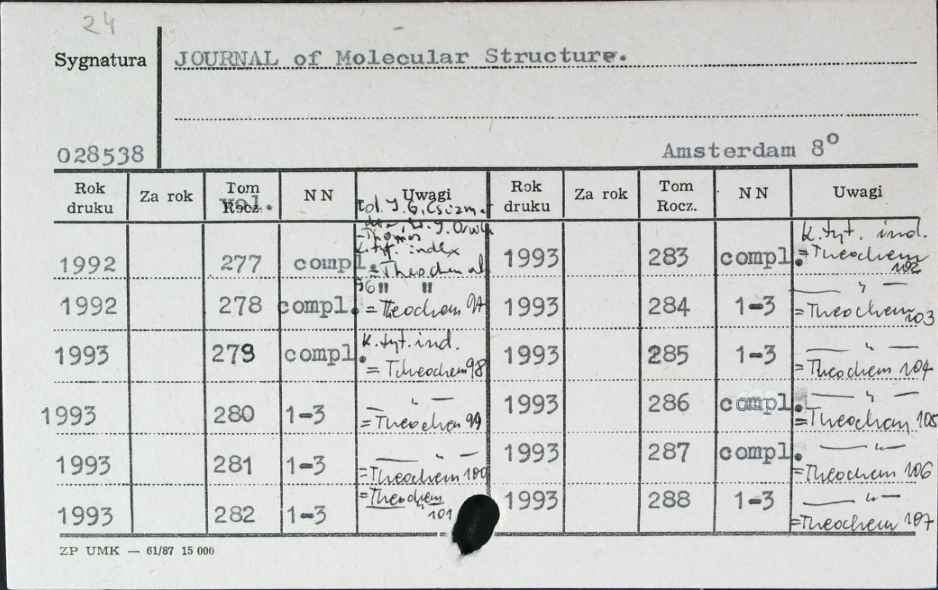 24
Sygnatura JOURNAL of Molecular Structure.
028538 Amsterdam 8°
Rok druku Za rok Tom Rocz. vol. NN Uwagi Rok druku Za rok Tom Rocz. NN Uwagi
1992 277 compl. k.tyt. index = Theochem 96 1993 283 compl. k.tyt. ind. = Theochem 102
1992 278 compl. " " = Theochem 97 1993 284 1-3 — " — = Theochem 103
1993 279 compl. k.tyt. ind. = Theochem 98 1993 285 1-3 — " — = Theochem 104
1993 280 1-3 — " — = Theochem 99 1993 286 compl. — " — = Theochem 105
1993 281 1-3 — " — = Theochem 100 1993 287 compl. — " — = Theochem 106
1993 282 1-3 = Theochem 101 1993 288 1-3 — " — = Theochem 107
ZP UMK — 61/87 15 000